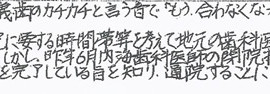 義歯のカチカチと言う音で「もう、合わなくなっ
に要する時間帯等を考えて地元の歯科医
しかし、昨年6月内海歯科医師の閉院
を完了している旨を知り、通院することに、